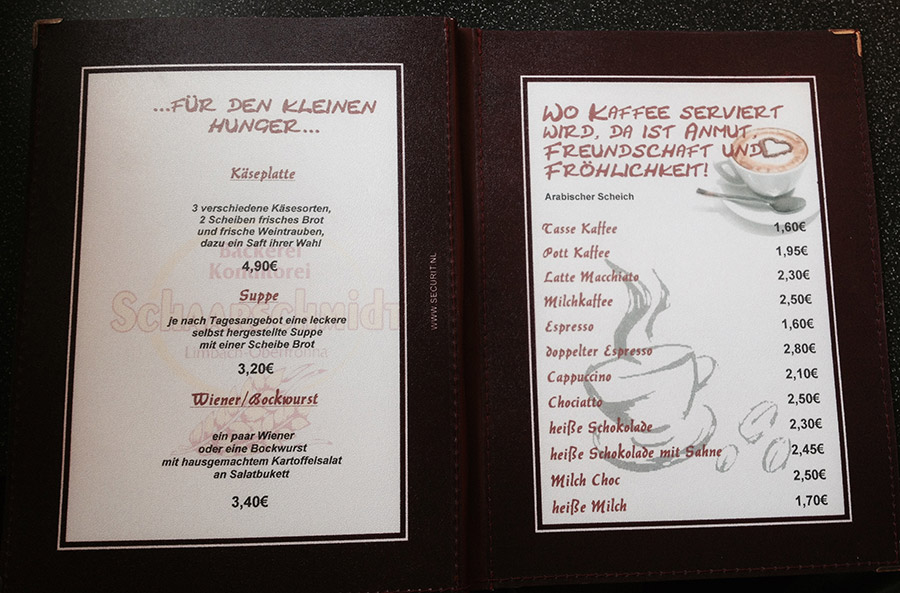 ...FÜR DEN KLEINEN
HUNGER...
Käseplatte
3 verschiedene Käsesorten,
2 Scheiben frisches Brot
und frische Weintrauben,
dazu ein Saft ihrer Wahl
4,90€
Bäckerei
Konditorei
Schaarschmidt
Limbach-Oberfrohna
Suppe
je nach Tagesangebot eine leckere
selbst hergestellte Suppe
mit einer Scheibe Brot
3,20€
Wiener/Bockwurst
ein paar Wiener
oder eine Bockwurst
mit hausgemachtem Kartoffelsalat
an Salatbukett
3,40€
WWW.SECURIT.NL
WO KAFFEE SERVIERT
WIRD, DA IST ANMUT,
FREUNDSCHAFT UND
FRÖHLICHKEIT!
Arabischer Scheich
Tasse Kaffee 1,60€
Pott Kaffee 1,95€
Latte Macchiato 2,30€
Milchkaffee 2,50€
Espresso 1,60€
doppelter Espresso 2,80€
Cappuccino 2,10€
Chociatto 2,50€
heiße Schokolade 2,30€
heiße Schokolade mit Sahne 2,45€
Milch Choc 2,50€
heiße Milch 1,70€